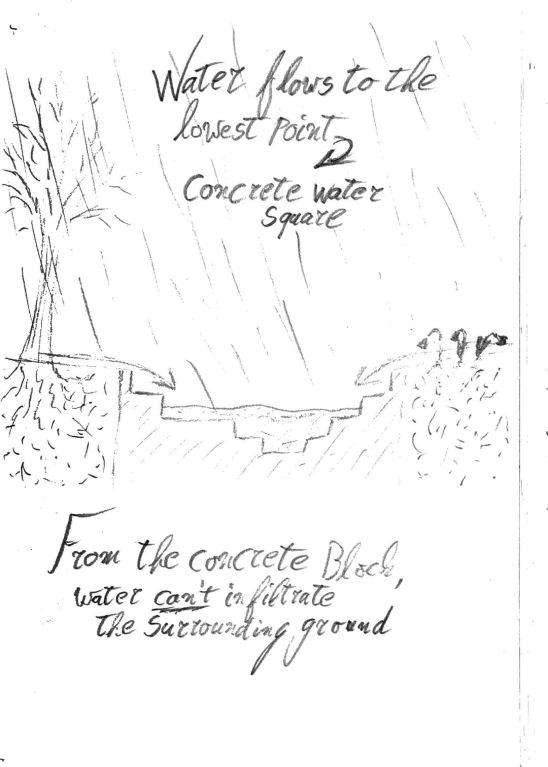 Water flows to the
lowest Point
Concrete water
Square
From the concrete Block,
water can't infiltrate
the Surrounding ground